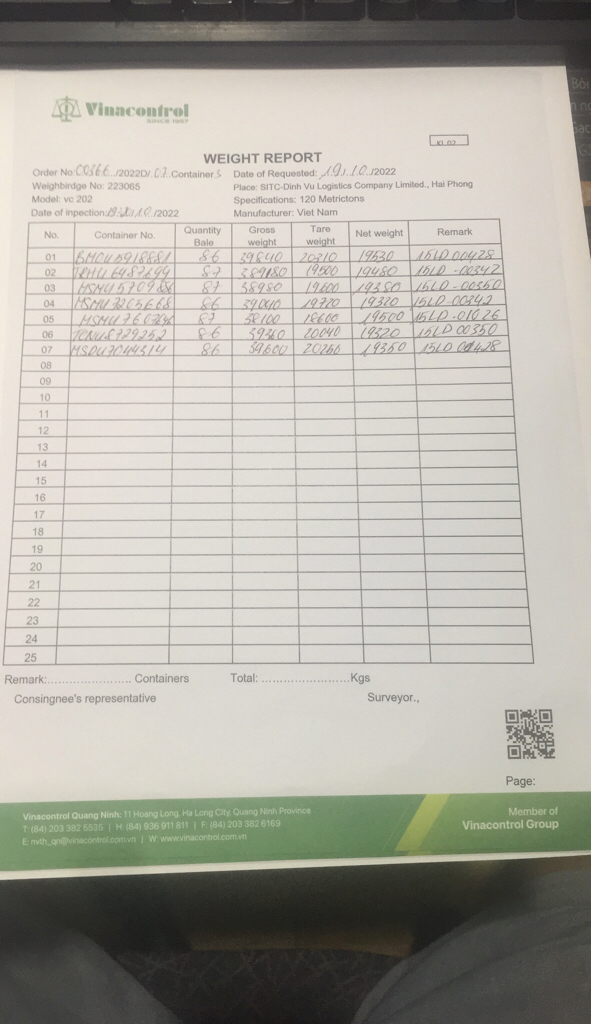 Vinacontrol
SINCE 1957
WEIGHT REPORT
Order No: 00366 /2022D/ 07 Containers Date of Requested: 19/ 10 /2022
Weighbirdge No: 223065 Place: SITC-Dinh Vu Logistics Company Limited., Hai Phong
Model: vc 202 Specifications: 120 Metrictons
Date of inpection: /10/2022 Manufacturer: Viet Nam
No. Container No. Quantity Bale Gross weight Tare weight Net weight Remark
01 BMOU5918881 86 39840 20310 19530 15LD 00428
02 87 19500 19480 15LD -00342
03 87 38980 19600 19380 15LD -00350
04 86 39040 19720 19320 15LD-00342
05 87 38100 18600 19500 15LD -01026
06 TCNU8729252 86 39360 20040 19320 15LD 00350
07 MSDU7044314 86 39600 20250 19350 15LD 00428
08
09
10
11
12
13
14
15
16
17
18
19
20
21
22
23
24
25
Remark:........................ Containers Total: ........................Kgs
Consingnee's representative Surveyor.,
Page:
Vinacontrol Quang Ninh: 11 Hoang Long, Ha Long City, Quang Ninh Province
T: (84) 203 382 5535 | H: (84) 936 911 811 | F: (84) 203 382 6169
E: nvth_qn@vinacontrol.com.vn | W: www.vinacontrol.com.vn
Member of
Vinacontrol Group